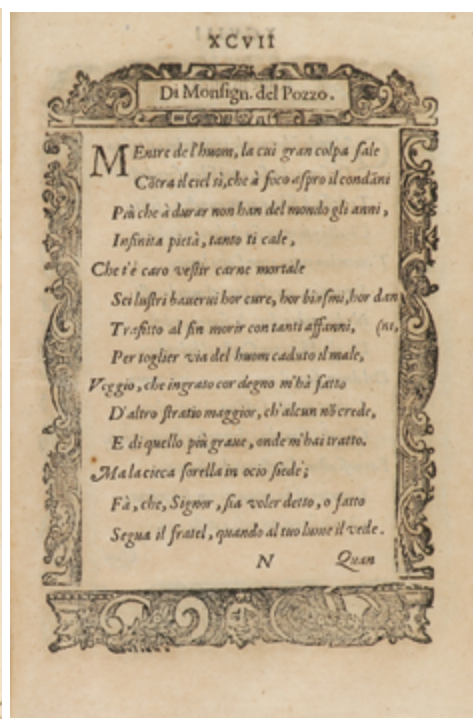 XCVII
Di Monsign. del Pozzo.
MEntre de l'huom, la cui gran colpa sale
Cōtra il ciel sì, che à foco aspro il condāni
Più che à durar non han del mondo gli anni,
Infinita pietà, tanto ti cale,
Che t'è caro vestir carne mortale
Sei lustri haverui hor cure, hor biasmi, hor dan
Trafitto al fin morir con tanti affanni, (ni,
Per toglier via del huom caduto il male,
Veggio, che ingrato cor degno m'hà fatto
D'altro stratio maggior, ch'alcun nō crede,
E di quello più graue, onde m'hai tratto.
Ma la cieca sorella in ocio siede;
Fà, che, Signor, sia voler detto, o fatto
Segua il fratel, quando al tuo lume il vede.
N Quan